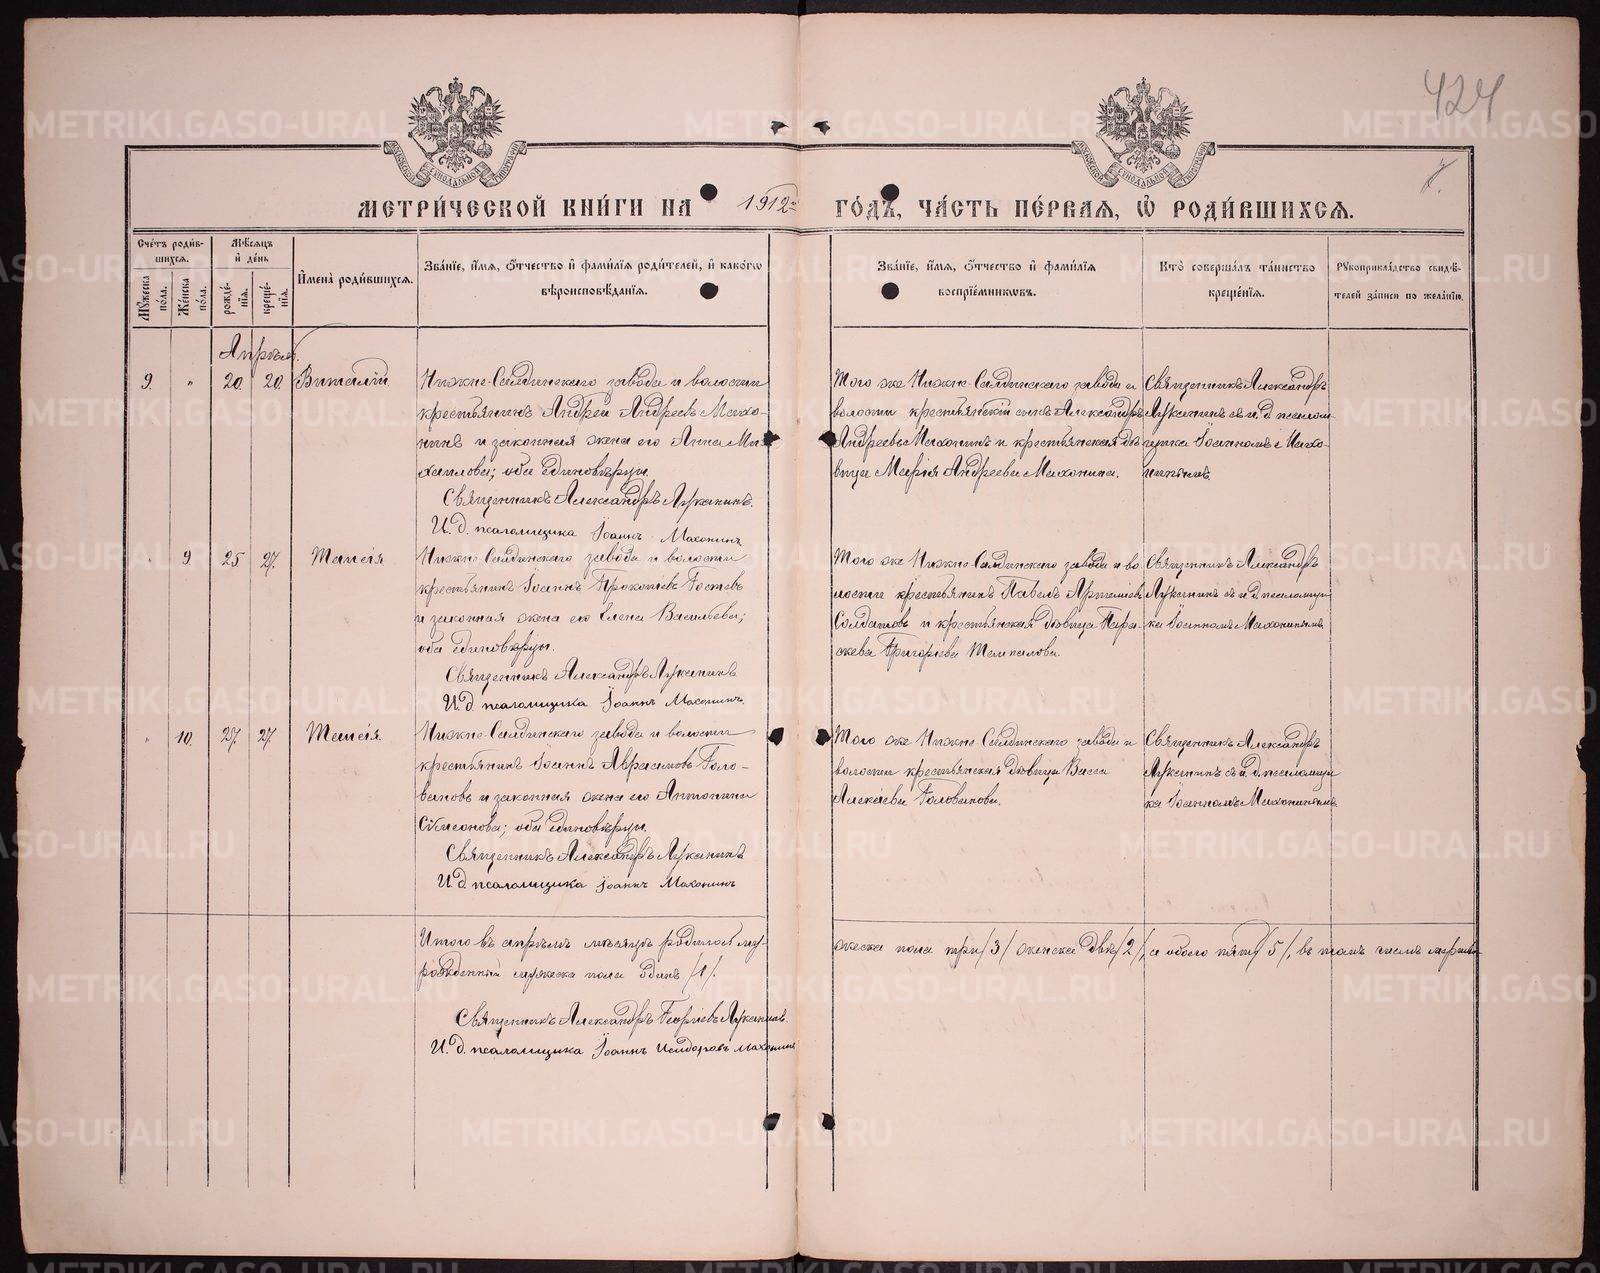 424
7.
МЕТРИ́ЧЕСКОЙ КНИ́ГИ НА 1912 ГО́ДЪ, ЧА́СТЬ ПЕ́РВАЯ, Ѡ РОДИ́ВШИХСЯ.
Сче́тъ роди́вшихся.
Му́жеска по́ла.
Же́нска по́ла.
Мѣ́сяцъ и де́нь
рожде́нїя.
креще́нїя.
Имена̀ роди́вшихся.
Зва́нїе, и́мя, о́тчество и фами́лїя роди́телей, и како́гѡ
вѣроисповѣ́данїя.
Зва́нїе, и́мя, о́тчество и фами́лїя
воспрїе́мниковъ.
Кто̀ соверша́лъ та́инство
креще́нїя.
Рукоприкла́дство свидѣ́-
телей за́писи по жела́нїю.
Апрѣль.
9. " 20. 20. Виталій
Нижне-Салдинскаго завода и волости
крестьянинъ Андрей Андреевъ Махо-
нинъ и законная жена его Анна Ми-
хаилова; оба единовѣрцы.
Священникъ Александръ Луканинъ.
И. д. псаломщика Іоаннъ Махонинъ
Того же Нижне-Салдинскаго завода и
волости крестьянскій сынъ Александръ
Андреевъ Махонинъ и крестьянская дѣ-
вица Марія Андреева Махонина.
Священникъ Александръ
Луканинъ съ и. д. псалом-
щика Іоанномъ Махо-
нинымъ.
" 9. 25 27. Таисія
Нижне-Салдинскаго завода и волости
крестьянинъ Іоаннъ Прокопьевъ Гостевъ
и законная жена его Елена Васильева;
оба единовѣрцы.
Священникъ Александръ Луканинъ
И. д. псаломщика Іоаннъ Махонинъ.
Того же Нижне-Салдинскаго завода и во-
лости крестьянинъ Павелъ
Солдатовъ и крестьянская дѣвица Пара-
скева Григорьева
Священникъ Александръ
Луканинъ съ и. д. псаломщи-
ка Іоанномъ Махонинымъ.
" 10. 27. 27. Таисія.
Нижне-Салдинскаго завода и волости
крестьянинъ Іоаннъ Аврамовъ Голо-
вановъ и законная жена его Антонина
Сѵмеонова; оба единовѣрцы.
Священникъ Александръ Луканинъ
И. д. псаломщика Іоаннъ Махонинъ
Того же Нижне-Салдинскаго завода и
волости крестьянская дѣвица Васса
Алексѣева Голованова.
Священникъ Александръ
Луканинъ съ и. д. псаломщи-
ка Іоанномъ Махонинымъ
Итого въ апрѣлѣ мѣсяцѣ родилось му-
жеска пола три /3/ женска двѣ /2/, а обоего пять /5/, въ томъ числѣ мертво-
рожденный мужеска пола одинъ /1/.
Священникъ Александръ Георгіевъ Луканинъ.
И. д. псаломщика Іоаннъ Исидоровъ Махонинъ
METRIKI.GASO-URAL.RU